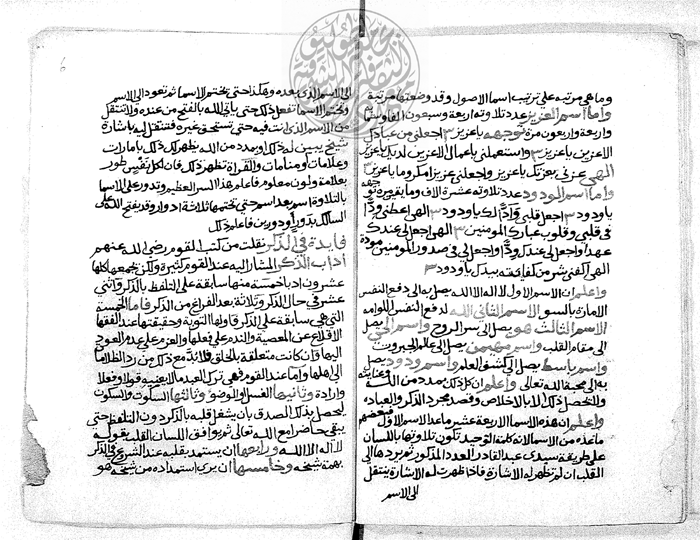 وما هي مرتبة على ترتيب اسما الاصول وقد وضعتها مرتبة
واما اسم العزيز عدد تلاوته اربعة وسبعون الفا
واربعة واربعون مرة توجهه ياعزيز ٣ اجعلني من عبادك
الاعزين ياعزيز ٣ واستعملني باعمال الاعزين لديك ياعزيز
الهي عزني بعزتك ياعزيز واجعلني عزيز
واما اسم الودود عدد تلاوته عشرة الاف وما يقصره توجهه
ياودود ٣ اجعل قلبي ياودود ٣ الهي اعطني ودا
في قلبي وقلوب عبادك المومنين ٣ الهي اجعل لي عندك
عهدا واجعل لي عندك ودا واجعل لي في صدور المومنين مودة
الهي اكفني شر من كفايته بيدك ياودود ٣
واعلم ان الاسم الاول لا اله الا الله يصل به الى دفع النفس
الامارة بالسو الاسم الثاني الله لدفع النفس اللوامة
الاسم الثالث هو يصل الى سر الروح واسم الحي يصل
الى مقام القلب واسم مهيمن يصل الى عالم الجبروت
واسم باسط يصل الى كشف العلم واسم ودود يصل
به الى محبة الله تعالى واعلم ان كل ذلك مدد من الله وعنايته
ولا تحصل ذلك الا بالاخلاص وقصد مجرد الذكر والعبادة
واعلم ان هذه الاسما الاربعة عشر ماعدا الاسم الاول
ماعده من الاسما لانه كلمة التوحيد تكون تلاوتها باللسان
على طريقة سيدي عبد القادر العدد المذكور ثم يردها الى
القلب ان لم تظهر له الاشارة فاذا ظهرت له الاشارة ينتقل
الى الاسم
الى الاسم الذي بعده وهكذا حتى يختم الاسما ثم تعود الى الاسم
وتختم الاسما تفعل ذلك حتى ياتي الله بالفتح من عنده ولا تنتقل
من الاسم الذي انت فيه حتى تستحق غيره فتنتقل اليه باشارة
شيخ يبين له ذلك او بمدد من الله يظهر لك ذلك بامارات
وعلامات ومنامات والقراة تظهر ذلك فان لكل نفس طور
بعلامة ولون معلوم فاعلم هذا السر العظيم وتدور على الاسما
بالتلاوة اسم بعد اسم حتى تختمها ثلاثة ادوار وقد يفتح الله على
السالك بدور او دورين فاعلم ذلك
فايدة في الذكر نقلت من كتب القوم رضي الله عنهم
اداب الذكر المشار اليه عند القوم كثيرة ولكن يجمعها كلها
عشرون ادبا خمسة منها سابقة على التلفظ بالذكر واثني
عشر في حال الذكر وثلاثة بعد الفراغ من الذكر فاما الخمسة
التي هي سابقة على الذكر فاولها التوبة وحقيقتها عند الفقها
الاقلاع عن المعصية والندم على فعلها والعزم على عدم العود
اليها وان كانت متعلقة بالخلق فلا بد مع ذلك من رد الظلامة
الى اهلها واما عند القوم فهي ترك العبد ما لا يعنيه قولا وفعلا
وارادة وثانيها الغسل او الوضو وثالثها السكوت والسكون
ليحصل بذلك الصدق بان يشغل قلبه بالذكر دون التلفظ حتى
يبقى حاضرا مع الله تعالى ثم يوافق اللسان القلب بقوله
لا اله الا الله ورابعها ان يستمد بقلبه عند الشروع في الذكر
بهمة شيخه وخامسها ان يرى استمداده من شيخه هو